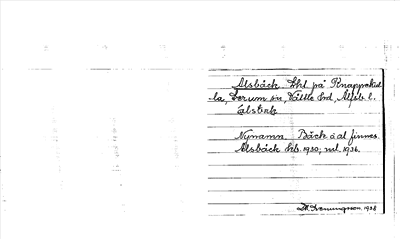 Alsbäck. Lhl på Knappekul
la, Lerum sn, Vättle hd, Älvsb. l.
Nynamn. Bäck o al finnes.
Alsbäck beb. 1930, nul. 1936.
1938